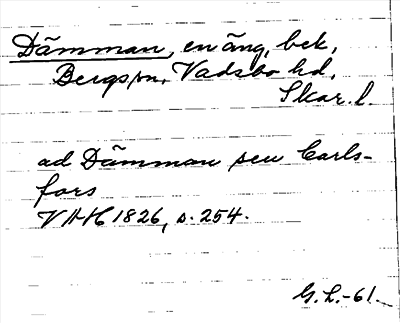 Dämman, en äng, bek,
Bergs sn, Vadsbo hd,
Skar. l.
ad Dämman seu Carls-
fors
VAH 1826, s. 254.
G. L. -61